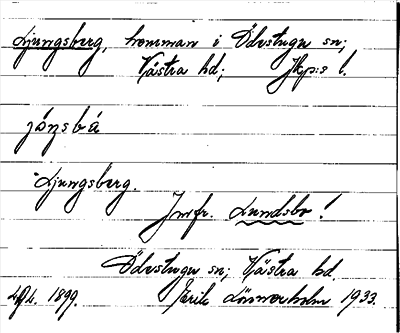 Ljungsberg, hemman i Ödestugu sn;
Västra hd; Jkp:s l.
jóŋsbá
Ljungsberg.
Jmfr. Lundsbo!
Ödestugu sn; Västra hd.
1899. Erik 1933.